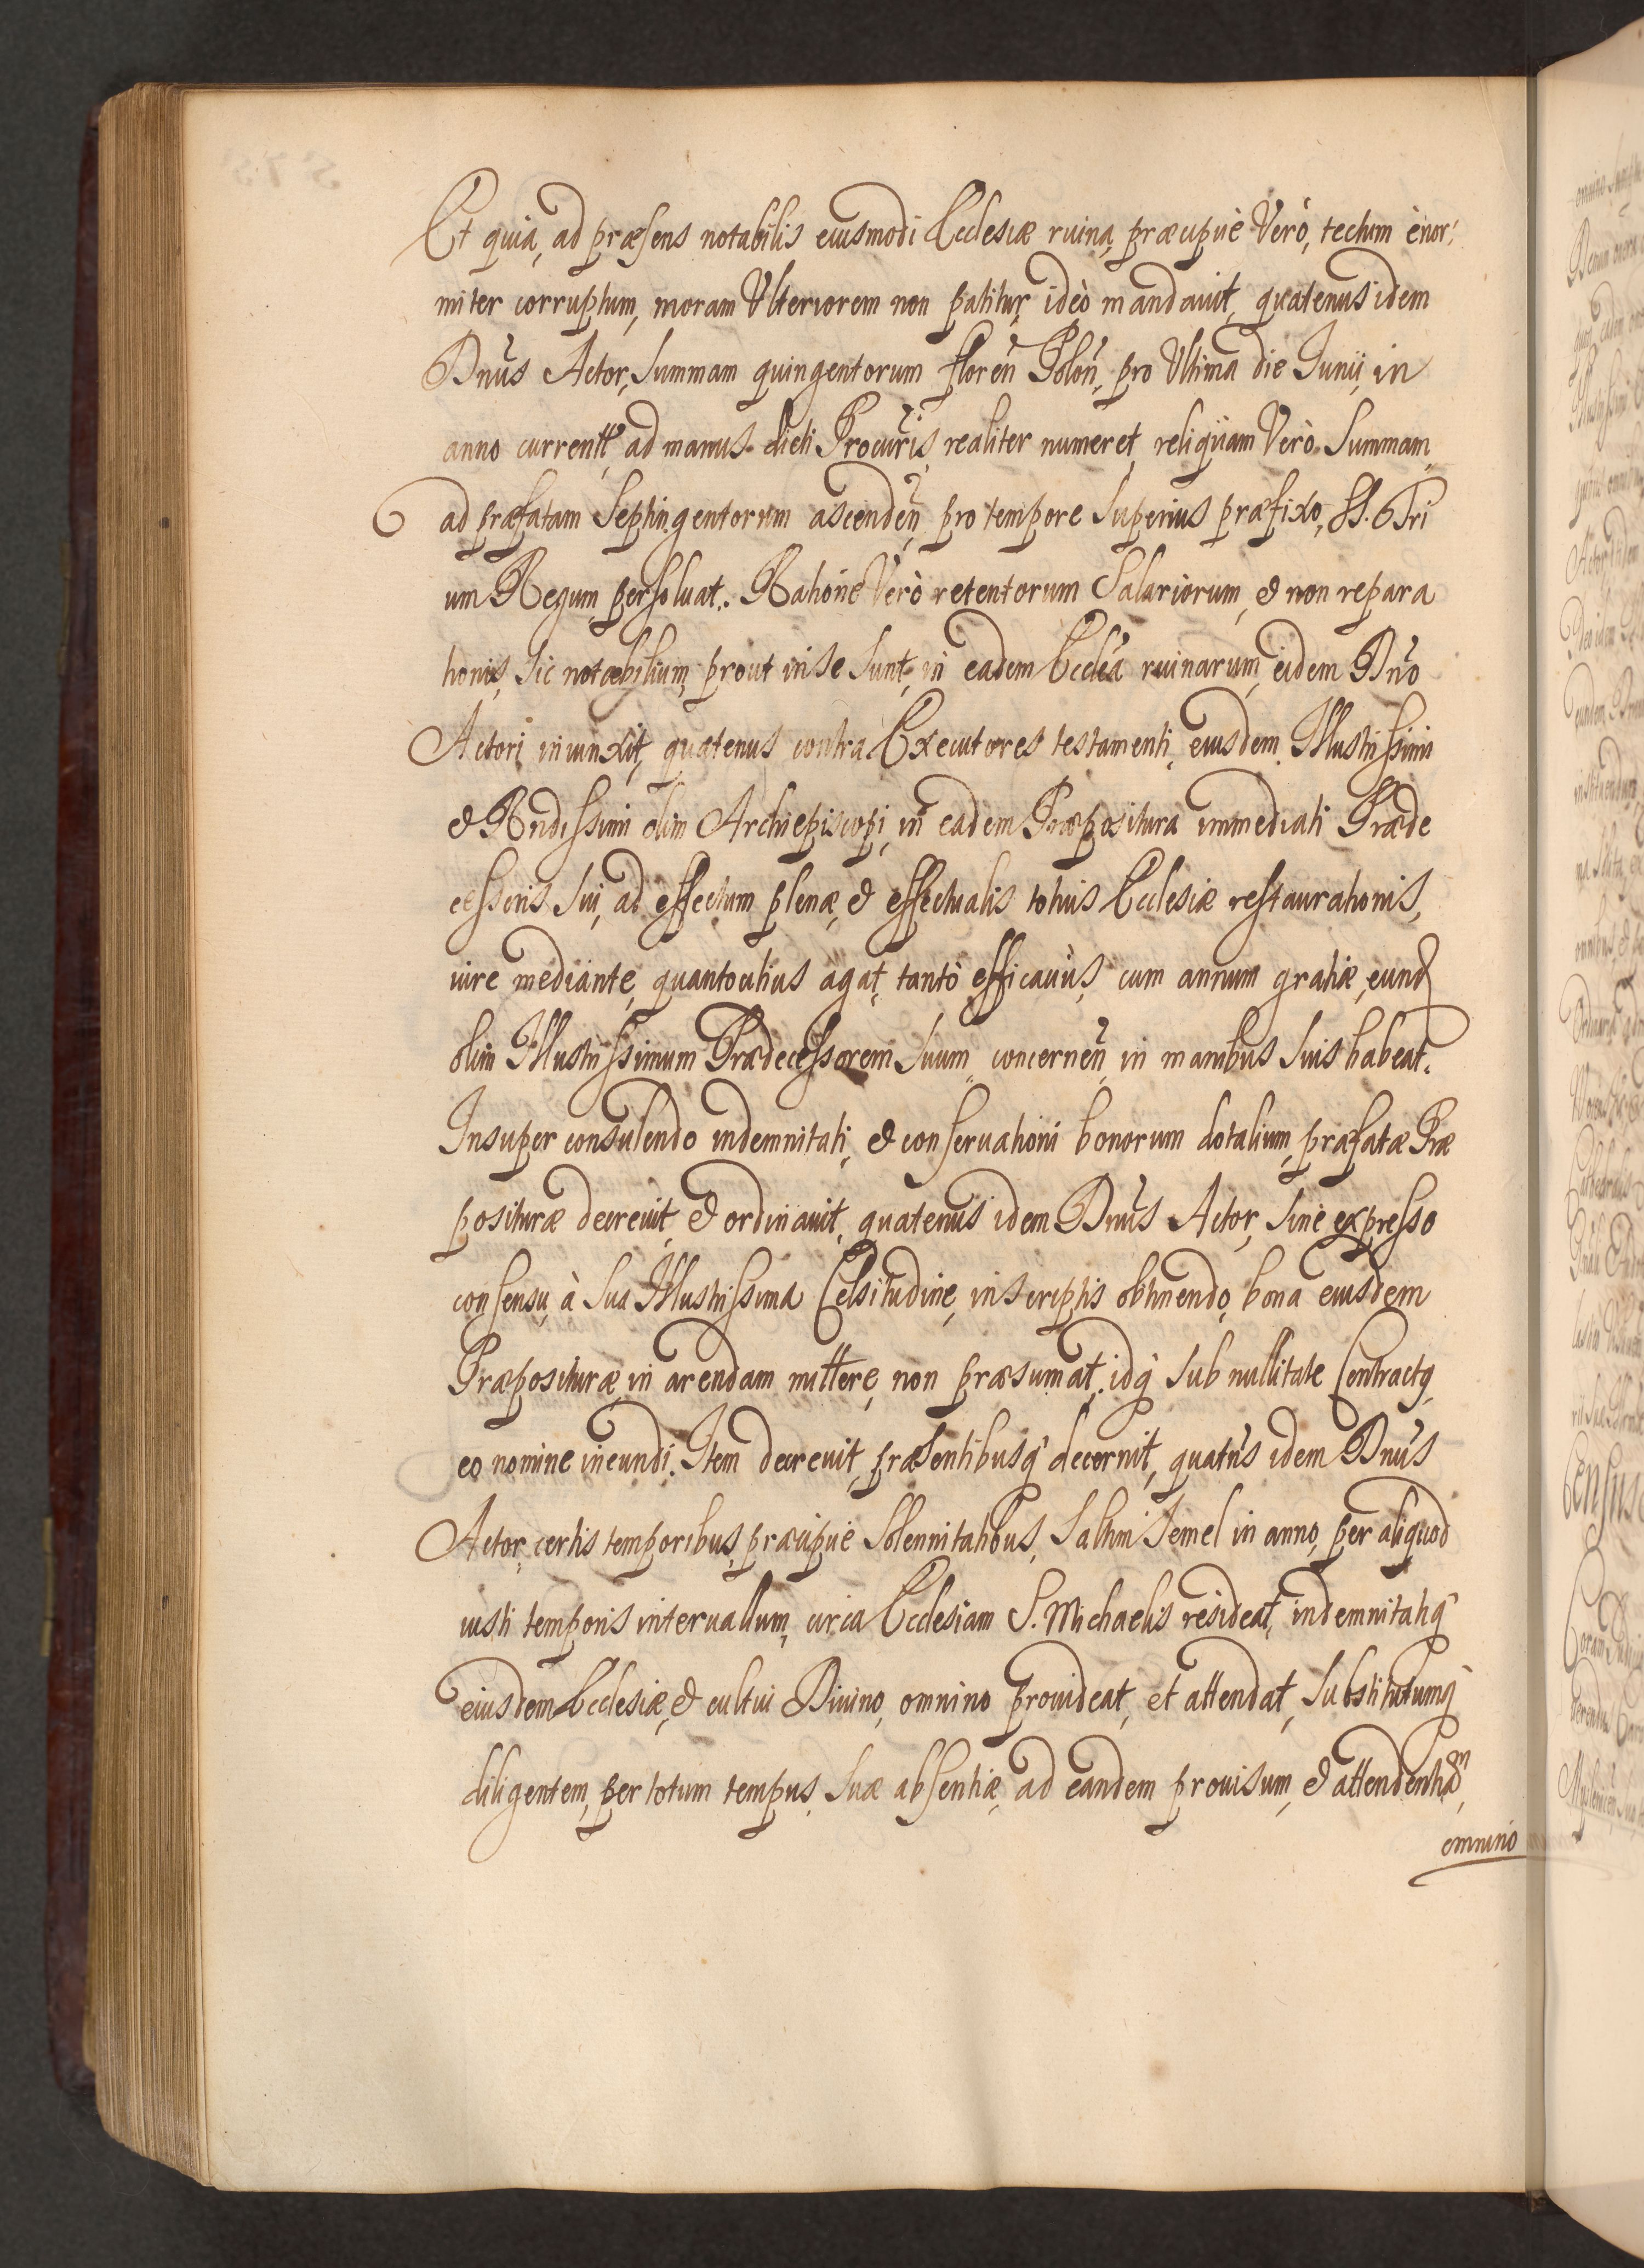 Et quia, ad præsens notabilis eiusmodi Ecclesiæ ruina, præcipuè Verò, tectum ènor,
miter corruptum, moram Vlteriorem non patitur, ideò mandauit, quatenus idem
Dnus Actor, Summam quingentorum floren Polon, pro Vltima die Junij, in
anno currenti, ad manus dicti Procuris, realiter numeret, reliquam Verò Summam,
ad præfatam Septingentorum ascenden, pro tempore Superius præfixo, SS. Tri
um Regum, persoluat. Ratione Verò retentorum Salariorum, & non repara
tionis, Sic notabilium, prout in se Sunt, in eadem Ecclia ruinarum, eidem Dno
Actori iniunxit, quatenus contra Executores testamenti, eiusdem Illustrissimi
& Rndissimi olim Archiepiscopi, in eadem Præpositura immediati Præde
cessoris Sui, ad effectum plenæ, & effectualis totius Ecclesiæ restaurationis,
iure mediante, quantocitius agat, tantò efficacius, cum annum gratiæ, eund
olim Illustrissimum Prædecessorem Suum, concernen, in manibus Suis habeat.
Insuper consulendo indemnitati, & conseruationi bonorum dotalium, præfatæ Præ
posituræ decreuit, & ordinauit, quatenus idem Dnus Actor, Sine expresso
consensu, à Sua Illustrissima Celsitudine, in scriptis obtinendo, bona eiusdem
Præposituræ, in arendam mittere, non præsumat, idq Sub nullitate Contractq
eo nomine ineundi. Item decreuit, præsentibusq decernit, quatnus idem Dnus
Actor, certis temporibus, præcipuè Solennitatibus, Saltim Semel in anno, per aliquod
iusti temporis interuallum, circa Ecclesiam S. Michaelis resideat, indemnitatiq
eiusdem Ecclesiæ, & cultui Diuino, omnino prouideat, et attendat, Substitutumq
diligentem, per totum tempus, Suæ absentiæ, ad eandem prouisum, & attendentiam,
omnino